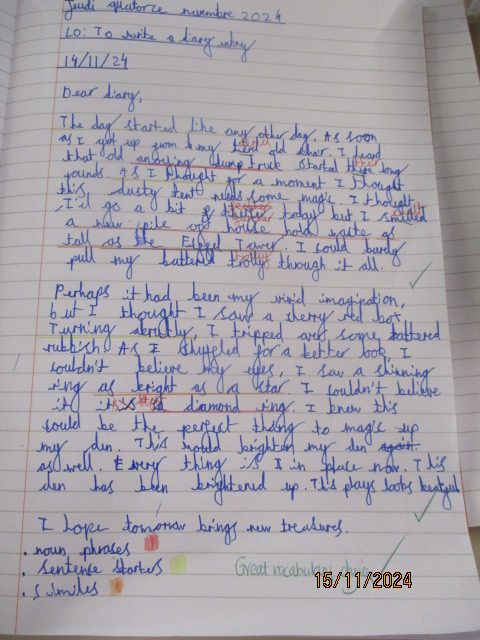 Jeudi quatorze novembre 2024
LO: To write a diary entry
14/11/24
Dear diary,
The day started like any other day. As soon
as I got up from my old chair. I heard
that old annoying dump truck started long
rounds. As I thought for a moment I thought
this dusty tent needs some magic. I thought
I'd go a bit today but I
a new pile off house hold waste as
tall as the Eiffel Tower. I could bardy
pull my battered trolly through it all.
Perhaps it had been my vivid imagination,
but I thought I saw a cherry red bot.
Turning abrutly, I tripped over some tattered
rubbish As I shuffled for a better look I
couldn't belive my eyes, I saw a shinning
ring as bright as a star. I couldn't believe
it a diamond ring. I knew this
would be the perfect thang to magic up
my den. This would brighten my den again.
as well. Every thing is I in place now. This
den has been brightened up. This plays looks
I hope tomorrow brings new treasures.
. noun phrases
. sentence starters
. similes
Great vocabulary
15/11/2024